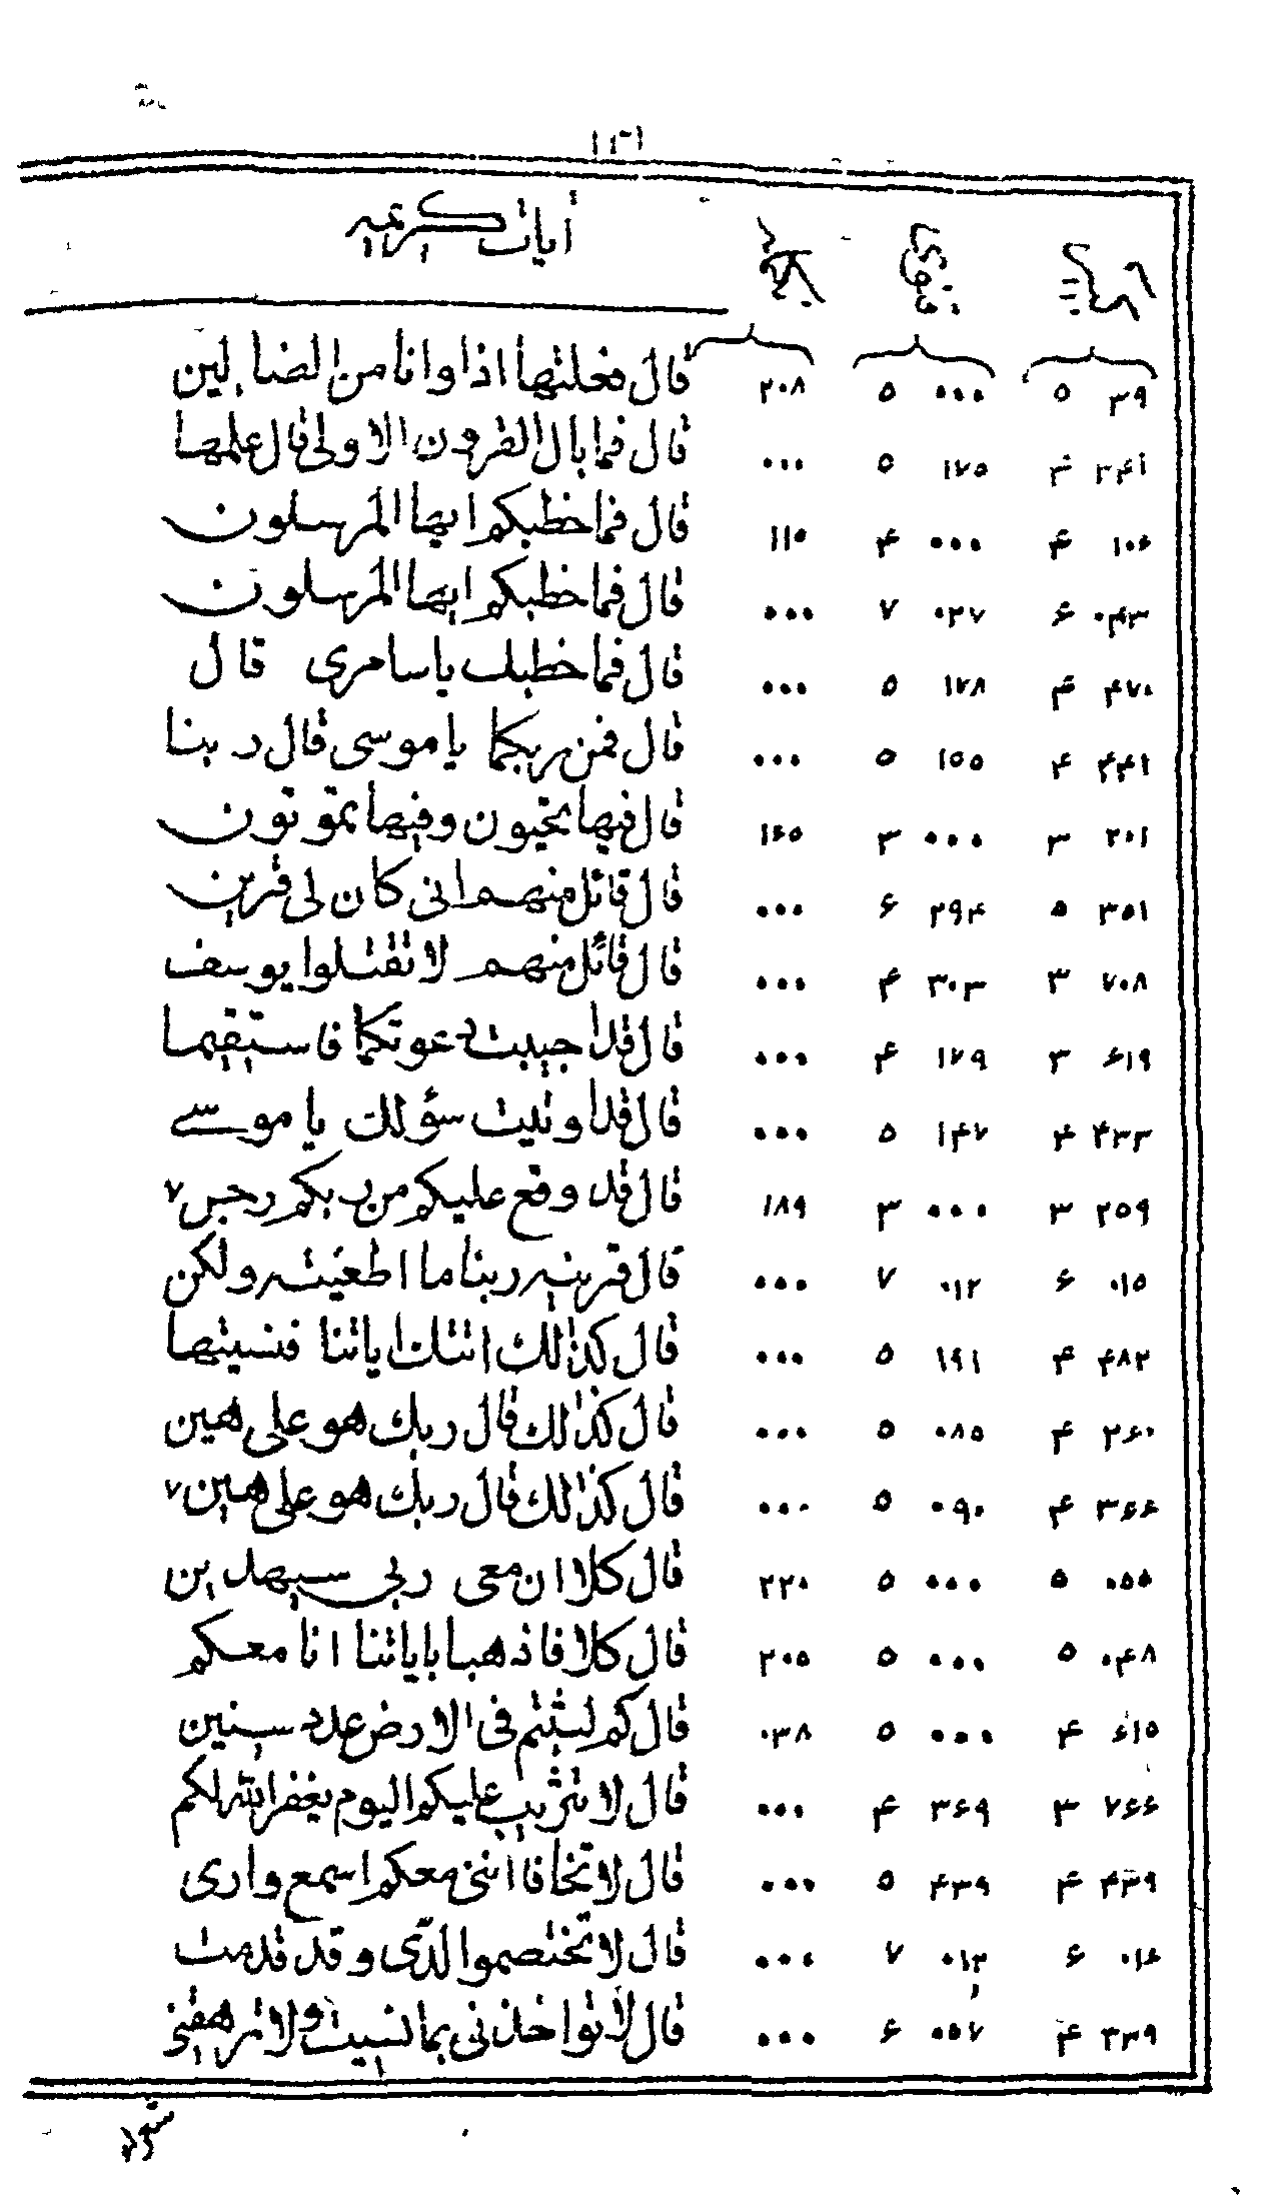 آیات کریمه
۳۹ ۵ ۰۰۰ ۵ ۲۰۸ قال فعلتها اذا وانا من الضالین
۳۴۱ ۴ ۱۷۵ ۵ ۰۰۰ قال فما بال القرون الاولی قال علمها
۱۰۶ ۴ ۰۰۰ ۴ ۱۱۵ قال فما خطبکم ایها المرسلون
۰۴۳ ۶ ۰۲۷ ۷ ۰۰۰ قال فما خطبکم ایها المرسلون
۴۷۰ ۴ ۱۷۸ ۵ ۰۰۰ قال فما خطبک یاسامری قال
۴۴۱ ۴ ۱۵۵ ۵ ۰۰۰ قال فمن ربکما یا موسی قال ربنا
۲۰۱ ۳ ۰۰۰ ۳ ۱۶۵ قال فیها تحیون وفیها تموتون
۳۵۱ ۵ ۲۹۴ ۶ ۰۰۰ قال قائل منهم انی کان لی قرین
۷۰۸ ۳ ۳۰۳ ۴ ۰۰۰ قال قائل منهم لا تقتلوا یوسف
۶۱۹ ۳ ۱۷۹ ۴ ۰۰۰ قال قد اجیبت دعوتکما فاستقیما
۴۳۳ ۴ ۱۴۷ ۵ ۰۰۰ قال قد اوتیت سؤلک یا موسے
۲۵۹ ۳ ۰۰۰ ۳ ۱۸۹ قال قد وقع علیکم من ربکم رجس ۷
۰۱۵ ۶ ۰۱۲ ۷ ۰۰۰ قال قرینه ربنا ما اطغیته ولکن
۴۸۲ ۴ ۱۹۱ ۵ ۰۰۰ قال کذالک اتتک ایاتنا فنسیتها
۲۶۰ ۴ ۰۸۵ ۵ ۰۰۰ قال کذالک قال ربک هو علی هین
۳۶۶ ۴ ۰۹۰ ۵ ۰۰۰ قال کذالک قال ربک هو علی هین ۷
۰۵۵ ۵ ۰۰۰ ۵ ۲۲۰ قال کلا ان معی ربی سیهدین
۰۴۸ ۵ ۰۰۰ ۵ ۲۰۵ قال کلا فاذهبا بایاتنا انا معکم
۶۱۵ ۴ ۰۰۰ ۵ ۰۳۸ قال کم لبثتم فی الارض عدد سنین
۷۶۶ ۳ ۳۶۹ ۴ ۰۰۰ قال لا تثریب علیکم الیوم یغفر الله لکم
۴۳۹ ۴ ۴۳۹ ۵ ۰۰۰ قال لا تخافا اننی معکم اسمع واری
۰۱۶ ۶ ۰۱۳ ۷ ۰۰۰ قال لا تختصموا لدی وقد قدمت
۳۳۹ ۴ ۰۵۷ ۶ ۰۰۰ قال لا تواخذنی بما نسیت ولا ترهقنی